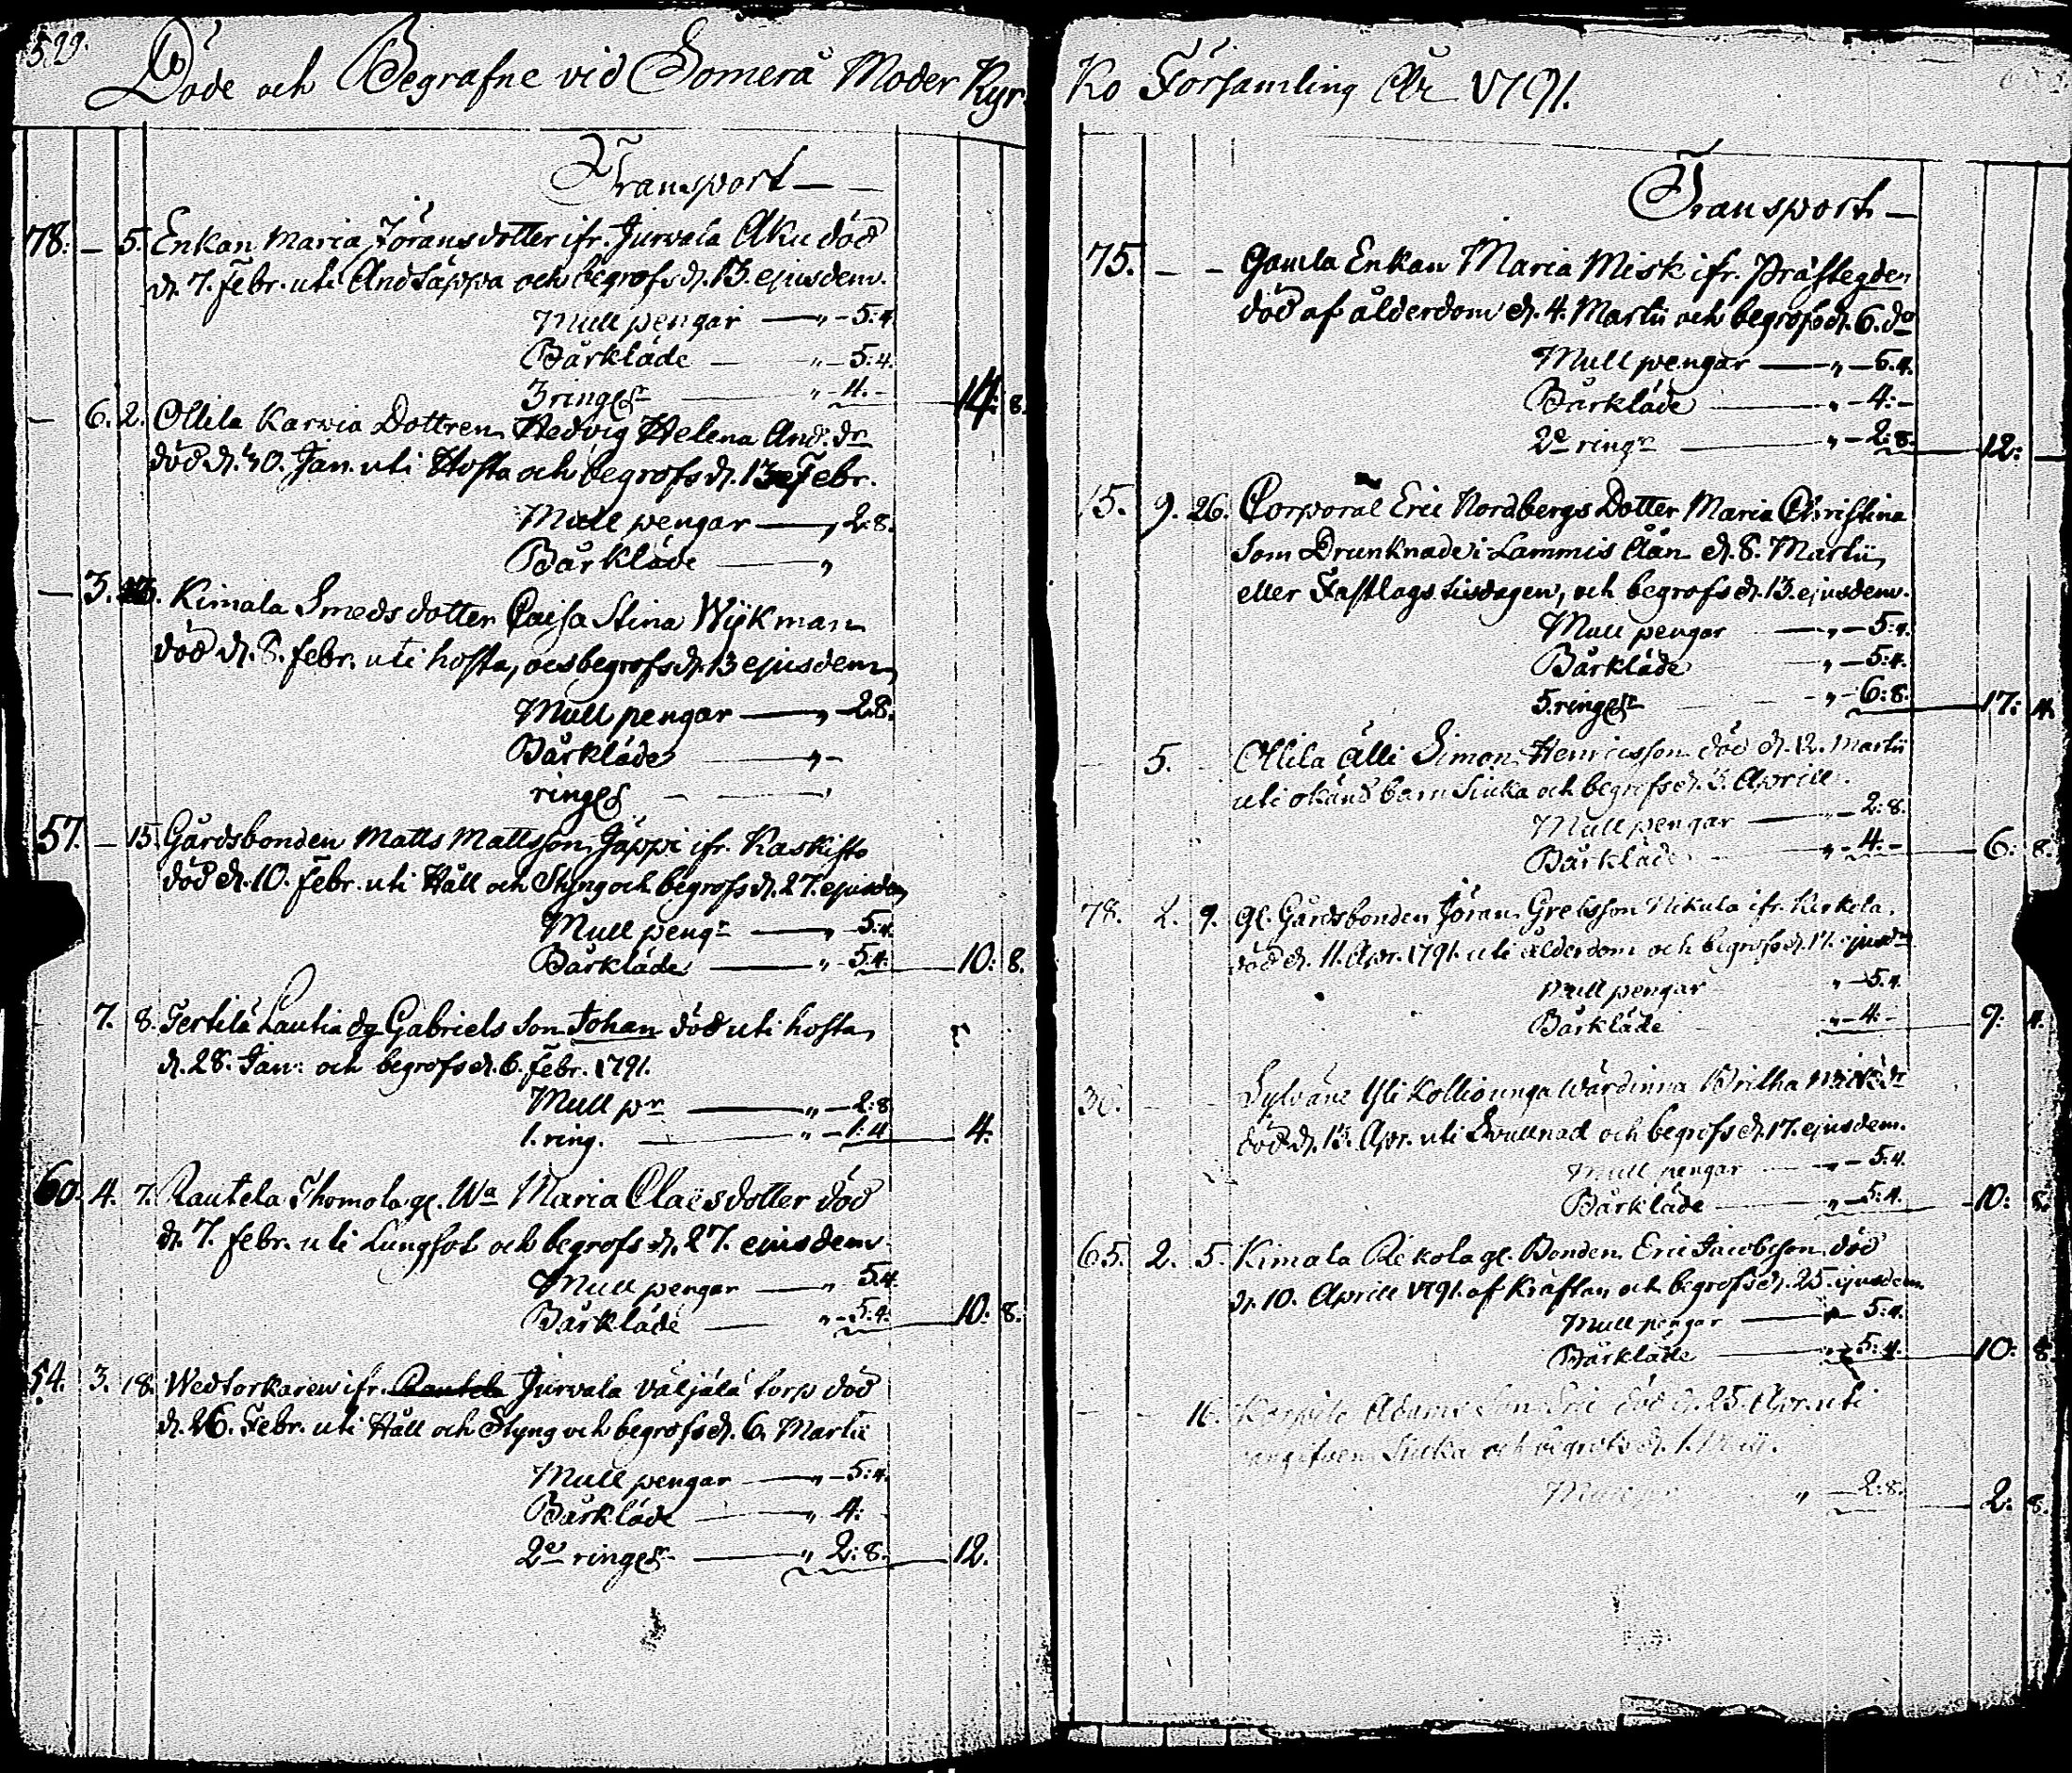 522.
Döde och Begrafne vid Somerå Moder Kyr
Transport — —
78. — 5. Enkan Maria Jöransdotter ifr. Jurvala Aku död
d. 7. Febr. uti Andtäppa och begrofs d. 13. ejusdem.
Mull pengar — " — 5:4
Bårkläde — " — 5:4.
3 ring:gr — " — 4. — 14: 8.
— 6. 2. Ollila Karvia Dottren Hedvig Helena And. dr
död d. 30. Jan. uti Hosta och begrofs d. 13 Febr.
Mull pengar — " 2:8.
Bårkläde — "
— 3. Kimala Smeds dotter Caisa Stina Wijkman
död d. 8. febr. uti hosta, och begrofs d. 13 ejusdem
Mull pengar — " — 2:8.
Bårkläde — " —
ring:gr — — "
57. — 15. Gårdsbonden Matts Mattsson Jäppi ifr. Kaskisto
död d. 10. febr. uti Håll och Styng och begrofs d. 27. ejusdem
Mull pengr — " — 5:4.
Bårkläde — " — 5:4. — 10: 8.
7. 8. Terttilä Lautia dg Gabriels Son Johan död uti hosta
d. 28. Jan: och begrofs d. 6. febr. 1791.
Mull pr — " — 2:8
1. ring. — " — 1:4 — 4.
60. 4. 7. Rautela Thomola gl. Wa Maria Claësdotter död
d. 7. febr. uti Lungsot och begrofs d. 27. ejusdem
Mull pengar — " 5:4.
Bårkläde — " — 5:4. — 10: 8.
54. 3. 18. Wedtorkaren ifr. Rautela Jurvala Väljälä torp död
d. 26. Febr. uti Håll och Styng och begrofs d. 6. Martii
Mull pengar — " — 5:4.
Bårkläde — " 4:
2e ring:gr — " 2:8. — 12.
Ko Församling År 1791.
Transport —
75. — — Gamla Enkan Maria Misk ifr. Prästegden
död af ålderdom d. 4. Martii och begrofs d. 6. do
Mull pengar — " — 5:4.
Bårkläde — " — 4: —
2e ringr — " — 2:8. — 12: —
15. 9. 26. Corporal Eric Nordbergs Dotter Maria Christina
som Drunknade i Lammis Åån d. 8. Martii
eller Fastlags tisdagen, och begrofs d. 13. ejusdem.
Mull pengar — " — 5:4.
Bårkläde " — 5:4.
5. ring:gr — " — 6:8. — 17: 4.
— 5. — Ollila Älli Simon Henricsson död d. 12. Martii
uti okänd barn Siuka och begrofs d. 3. Aprill.
Mull pengar — " — 2:8.
Bårkläde — " — 4: — 6: 8.
78. 2. 9. gl. Gårdsbonden Jöran Grelsson Nikula ifr. Kerkola.
död d. 11. Apr. 1791. uti ålderdom och begrofs d. 17. ejusdm
Mull pengar " — 5:4.
Bårkläde " — 4: — 9: 4.
30. — — Sylväne Yli Kollio unga Wärdinna Britha
död d. 13. Apr. uti Svullnad och begrofs d. 17. ejusdem.
Mull pengar — " — 5:4.
Bårkläde — " — 5:4. — 10: 8.
65. 2. 5. Kimala Rekola gl. Bonden Eric Jacobsson död
d. 10. Aprill 1791. af Kräftan och begrofs d. 25. ejusdem
Mull pengar — " — 5:4.
Bårkläde — " — 5:4. — 10: 8.
— — 16. Adams Son Eric död d. 25. Apr. uti
Siuka och begrofs d. 1. Maji.
Mull " — 2:8. — 2: 8.